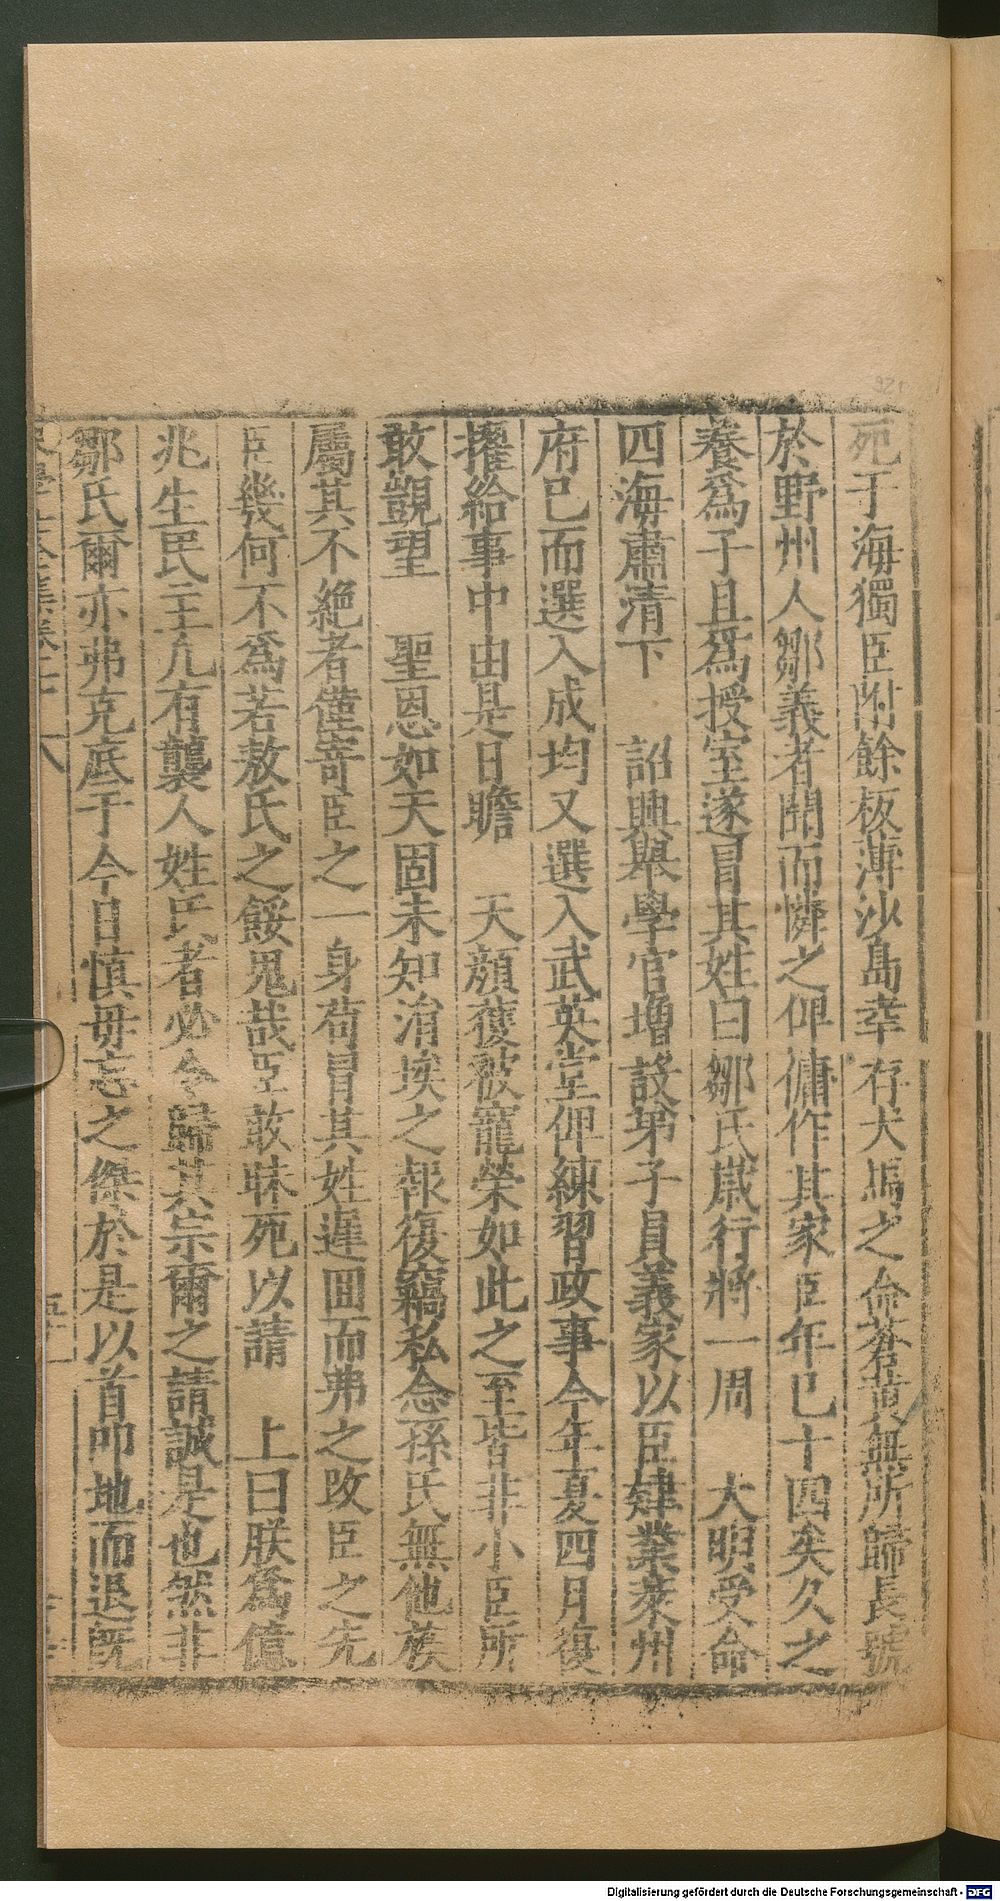 死于海獨臣附餘板薄沙島幸存犬馬之命蒼黃無所歸長號
於野州人鄒義者聞而憐之俾傭作其家臣年巳十四矣久之
養爲子且爲授室遂冒其姓曰鄒氏歲行將一周　大明受命
四海肅清下　詔興舉學官增設弟子員義家以臣肄業萊州
府巳而選入成均又選入武英堂俾練習政事今年夏四月復
擢給事中由是日瞻　天顏獲被寵榮如此之至皆非小臣所
敢覬望　聖恩如天固未知涓埃之報復竊私念孫氏無他族
屬其不絕者僅寄臣之一身苟冒其姓遲回而弗之改臣之先
臣幾何不爲若敖氏之餒鬼哉臣敢昧死以請　上曰朕爲億
兆生民主凡有襲人姓氏者必令歸其宗爾之請誠是也然非
鄒氏爾亦弗克底于今日慎毋忘之傑於是以首叩地而退旣
Digitalisierung gefördert durch die Deutsche Forschungsgemeinschaft - DFG